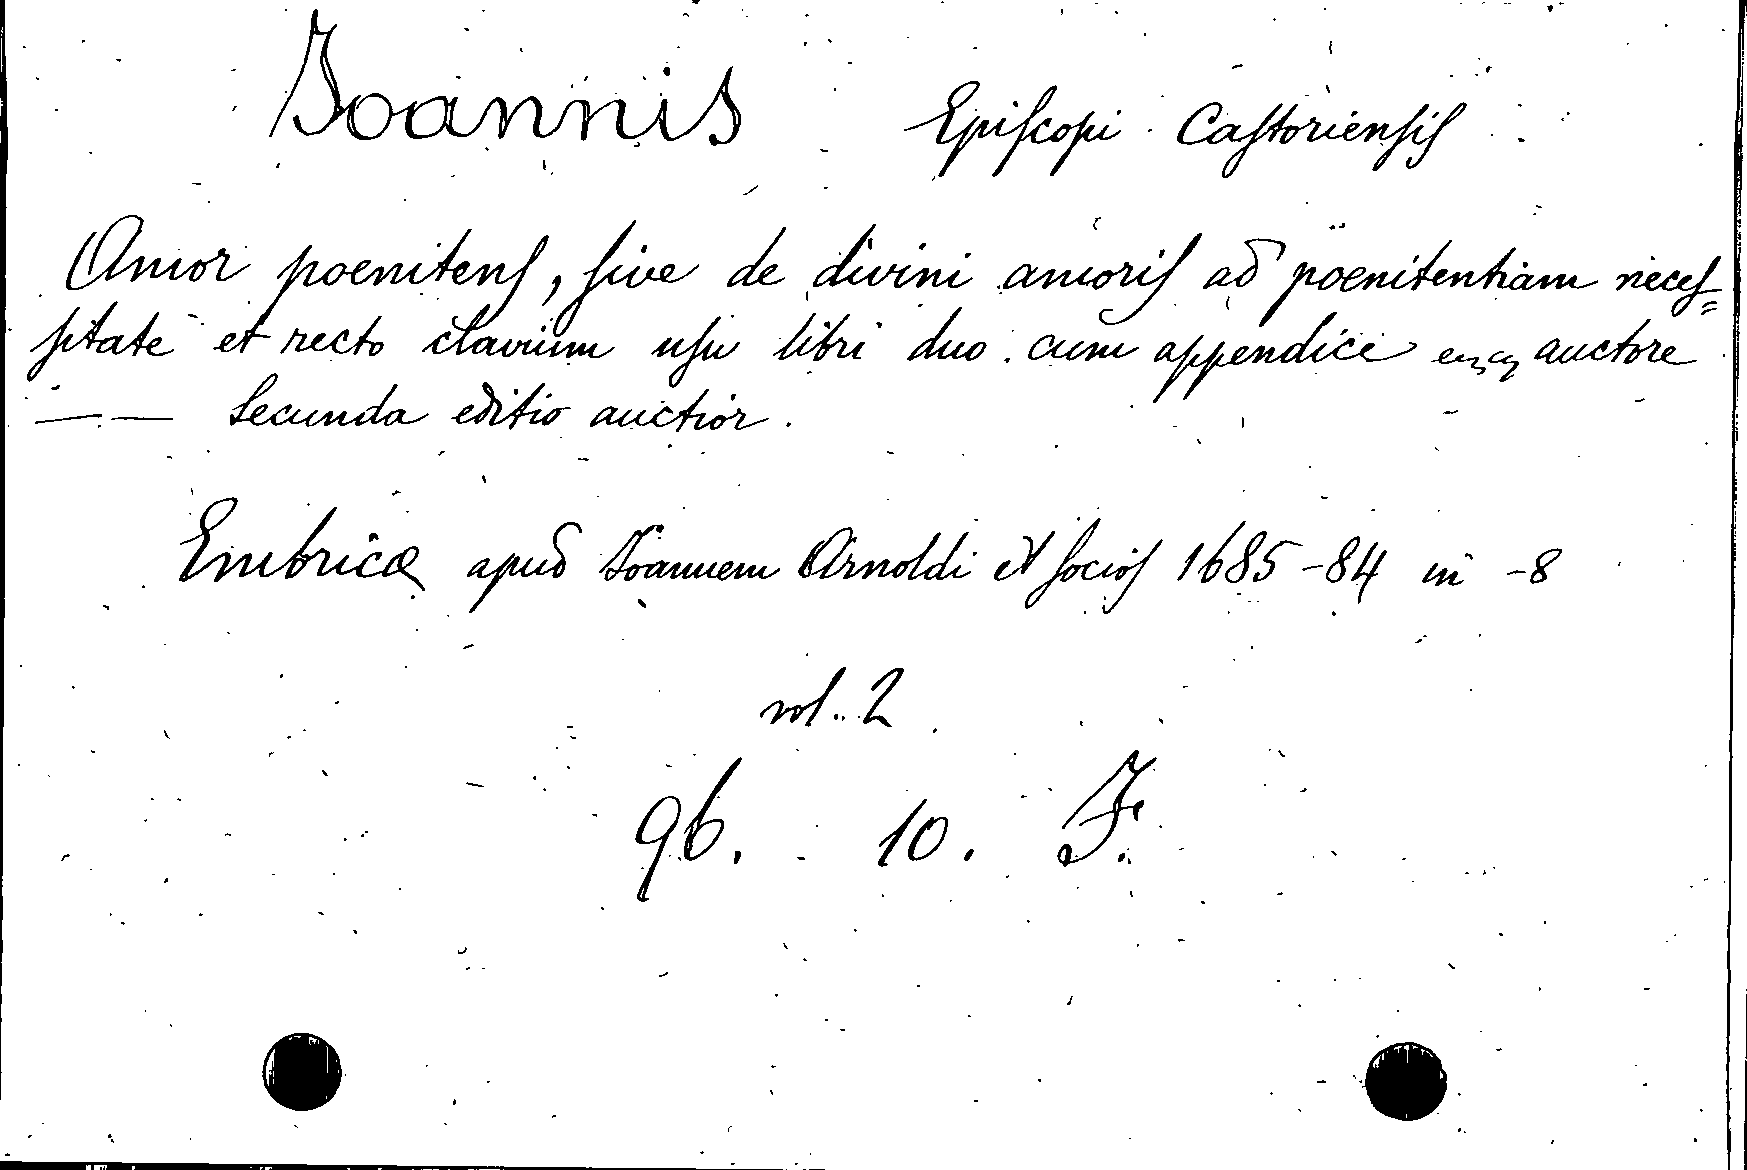 Joannis Episcopi Castoriensis
Amor poenitens, sive de divini amoris ad poenitentiam neces=
sitate et recto clavium usu libri duo. cum appendice auctore
—— Secunda editio auctior.
Embricæ apud Joannem Arnoldi et socios 1685-84 in -8
vol. 2
96. 10. J.